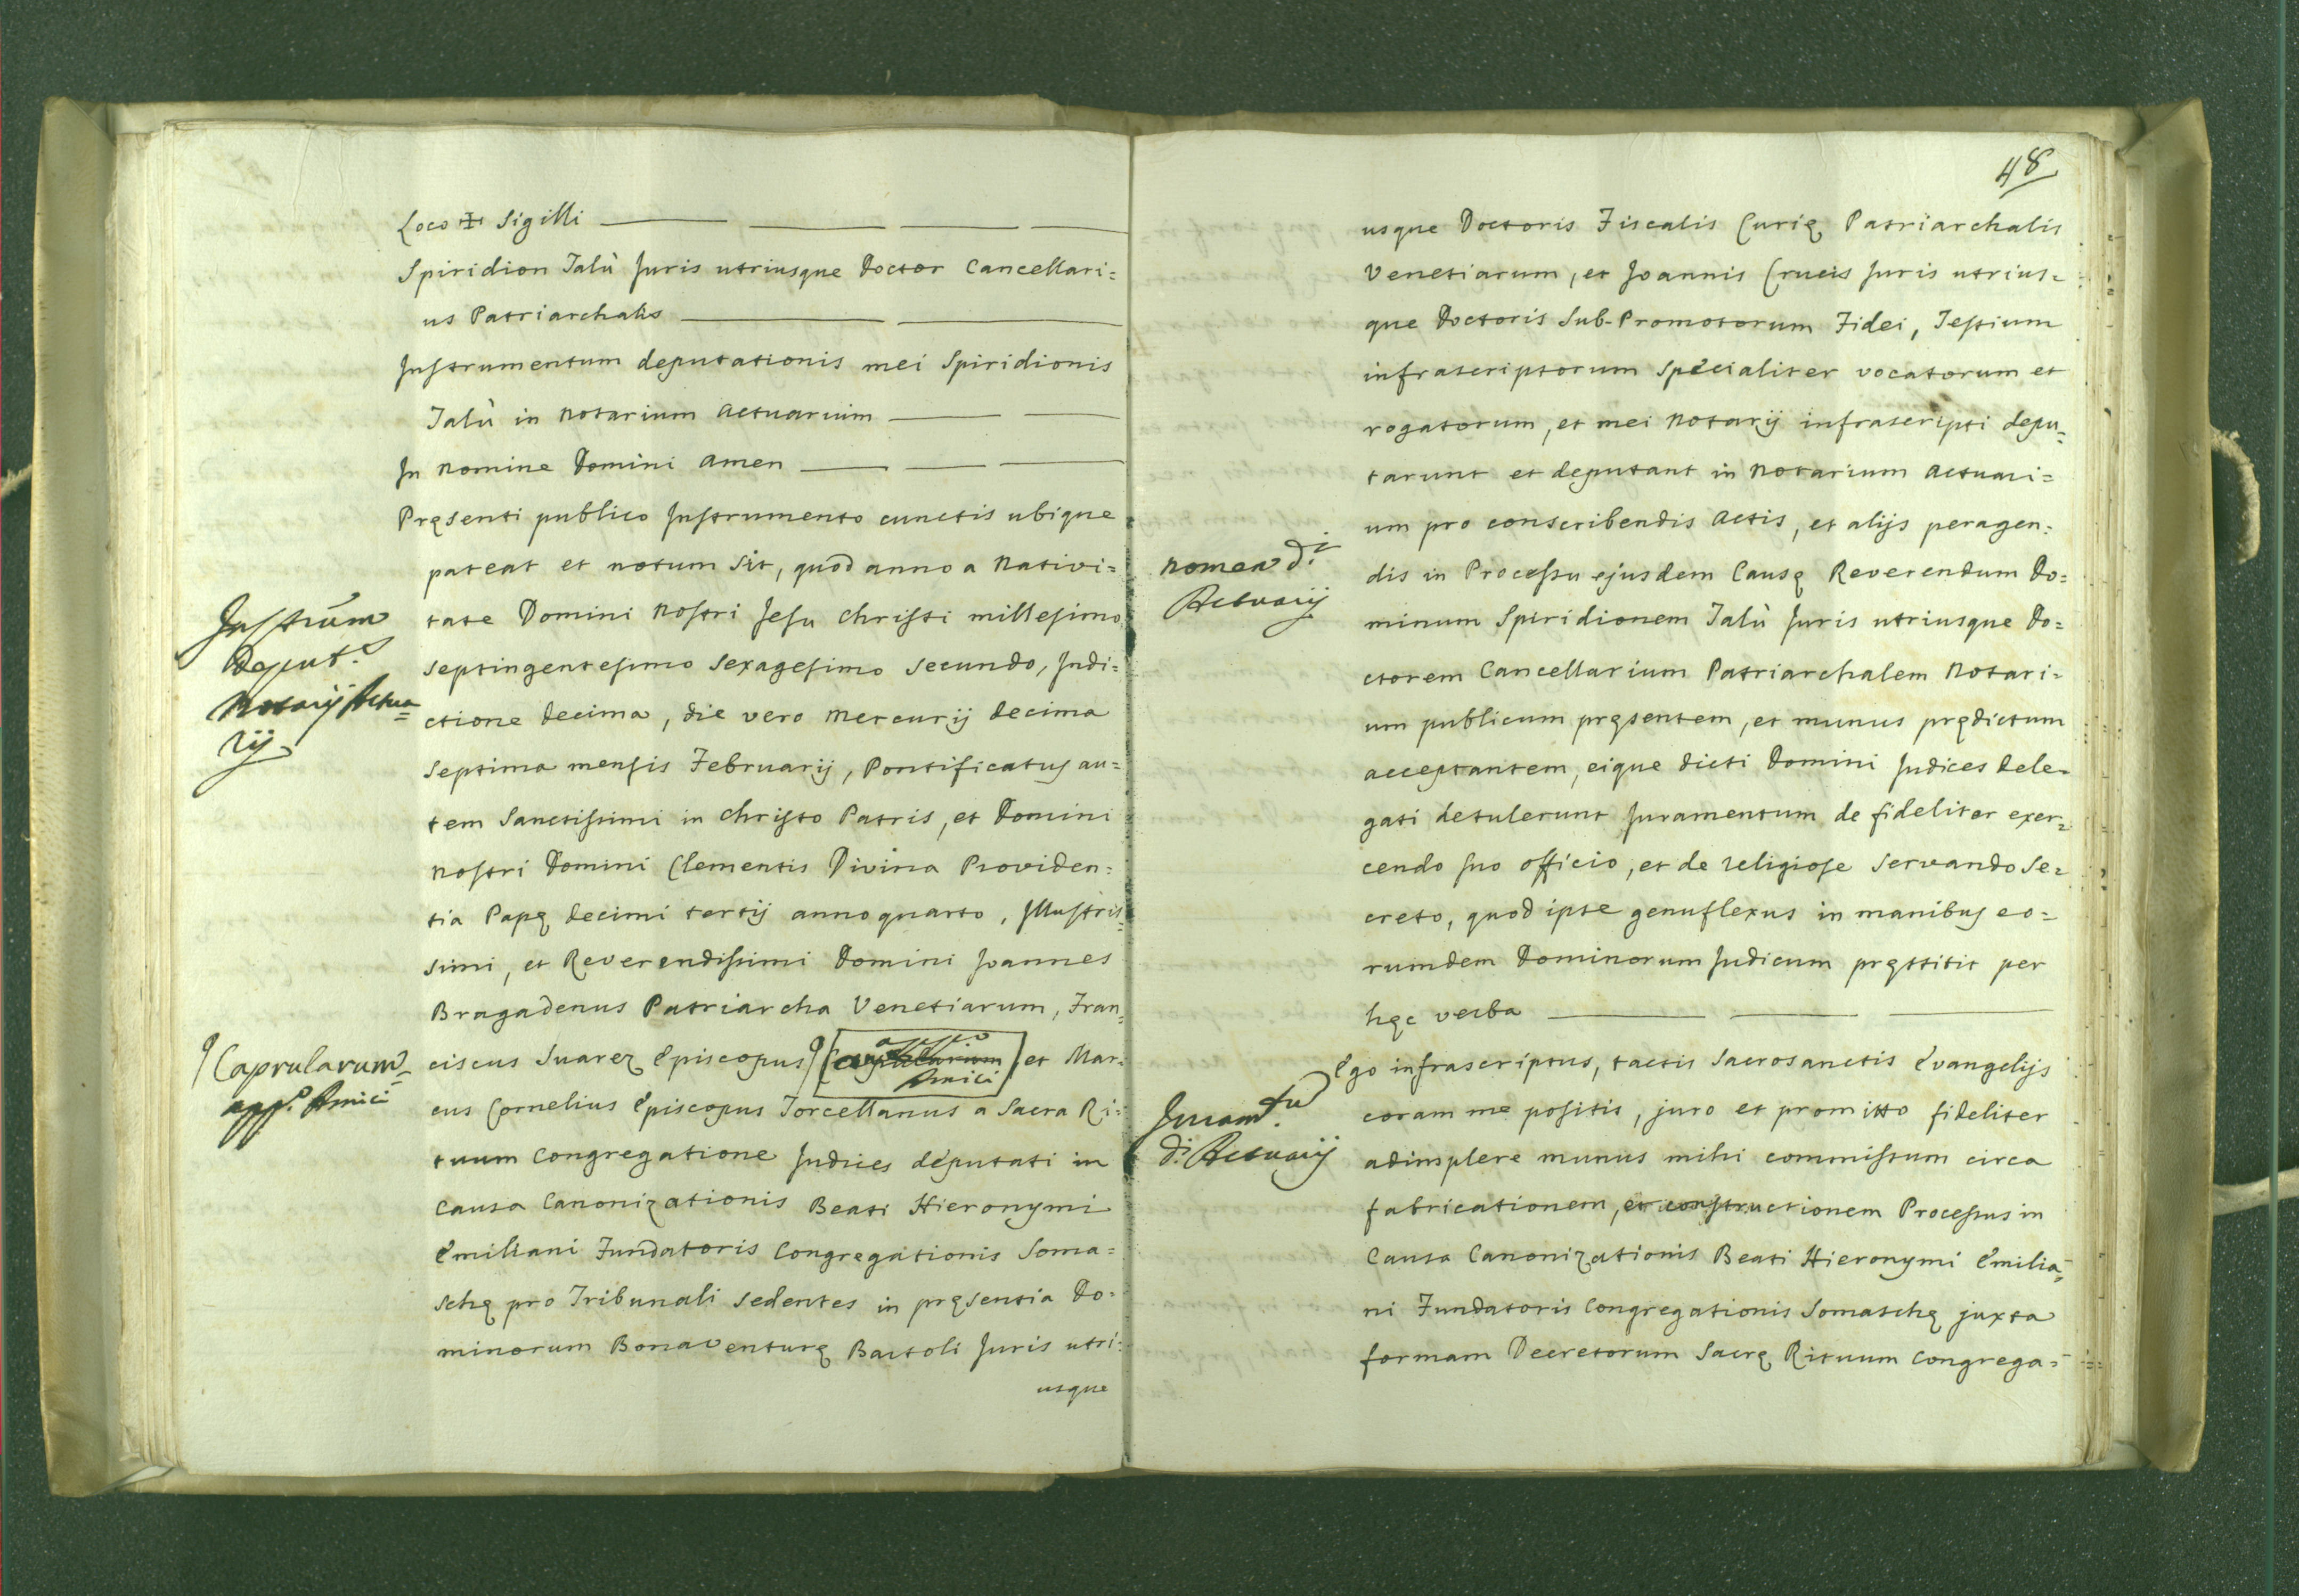 Loco ✠ Sigilli
Spiridion Talù Juris utriusque Doctor Cancellari=
us Patriarchalis
Instrumentum deputationis mei Spiridionis
Talù in Notarium Actuarium
In Nomine Domini Amen
Pręsenti publico Instrumento cunctis ubique
pateat et notum sit, quod anno a Nativi=
tate Domini Nostri Jesu Christi millesimo
septingentesimo sexagesimo secundo, Indi=
ctione decima, die vero Mercurij decima
septima mensis Februarij, Pontificatus au=
tem Sanctissimi in Christo Patris, et Domini
Nostri Domini Clementis Divina Providen=
tia Papę decimi tertij anno quarto, Illustris=
simi, et Reverendissimi Domini Joannes
Bragadenus Patriarcha Venetiarum, Fran=
ciscus Suarez Episcopus et Mar=
cus Cornelius Episcopus Torcellanus a Sacra Ri=
tuum Congregatione Judices députati in
Causa Canonizationis Beati Hieronymi
Emiliani Fundatoris Congregationis Soma=
schę pro Tribunali sedentes in pręsentia Do=
minorum Bonaventurę Bartoli Juris utri=
usque
Instrum
deput.
Notarij Actua=
rij
Caprularum=
app. Amici
48
usque Doctoris Fiscalis Curię Patriarchalis
Venetiarum, et Joannis Crucis Juris utrius=
que Doctoris Sub-Promotorum Fidei, Testium
infrascriptorum specialiter vocatorum et
rogatorum, et mei Notarij infrascripti depu=
tarunt et deputant in Notarium Actuari=
um pro conscribendis Actis, et alijs peragen=
dis in Processu ejusdem Causę Reverendum Do=
minum Spiridionem Talù Juris utriusque Do=
ctorem Cancellarium Patriarchalem Notari=
um publicum pręsentem, et munus prędictum
acceptantem, eique dicti Domini Judices Dele=
gati detulerunt Juramentum de fideliter exer=
cendo suo officio, et de religiose servando Se=
creto, quod ipse genuflexus in manibus eo=
rumdem Dominorum Judicum pręstitit per
hęc verba
Ego infrascriptus, tactis Sacrosanctis Evangelijs
coram me positis, juro et promitto fideliter
adimplere munus mihi commissum circa
fabricationem, et constructionem Processus in
Causa Canonizationis Beati Hieronymi Emilia=
ni Fundatoris Congregationis Somaschę juxta
formam Decretorum Sacrę Rituum Congrega=
nomen d.i
Actuarij
Juram.tu
d.i Actuarij